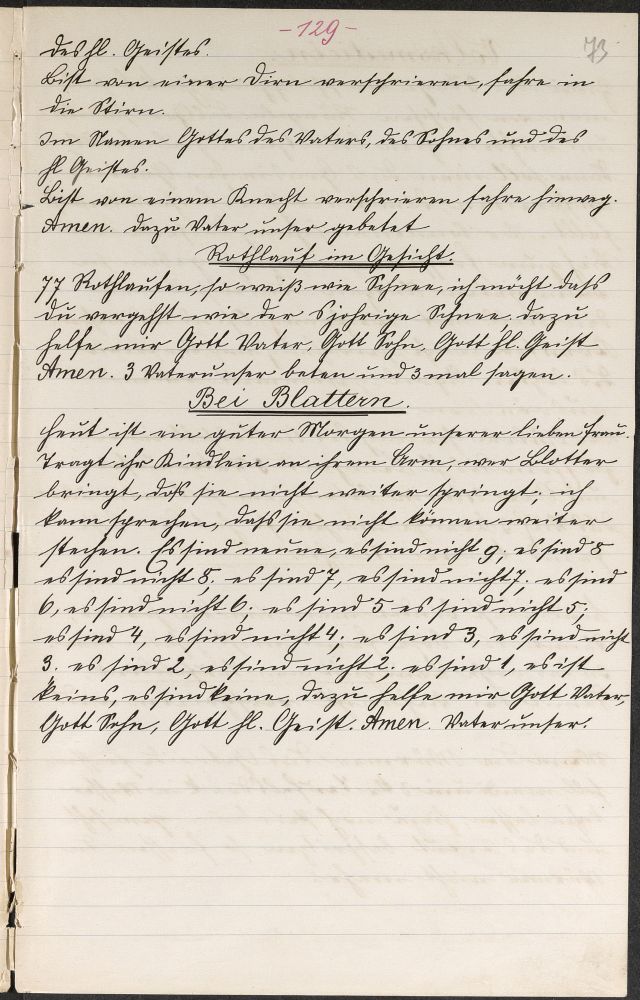 -129-
73
des hl. Geistes.
Bist von einer Dirn verschrieren, fahre in
die Stirn.
Im Namen Gottes des Vaters, des Sohnes und des
hl Geistes.
Bist von einem Knecht verschrieren fahre hinweg.
Amen. dazu Vater unser gebetet
Rothlauf im Gesicht.
77 Rothlaufen, so weiß wie Schnee, ich möcht dass
du vergehst wie der 5 johrige Schnee. dazu
helfe mir Gott Vater, Gott Sohn, Gott hl. Geist
Amen. 3 Vaterunser beten und 3 mal sagen.
Bei Blattern.
heut ist ein guter Morgen unserer lieben Frau.
Tragt ihr Kindlein an ihrem Arm, wer Blotter
bringt, dass sie nicht weiter springt; ich
kann sprechen, dass sie nicht können weiter
stechen. Es sind neune, es sind nicht 9; es sind 8
es sind nicht 8; es sind 7, es sind nicht 7; es sind
6, es sind nicht 6; es sind 5 es sind nicht 5;
es sind 4, es sind nicht 4; es sind 3, es sind nicht
3. es sind 2, es sind nicht 2; es sind 1, es ist
keins, es sind keine, dazu helfe mir Gott Vater,
Gott Sohn, Gott hl. Geist. Amen. Vater unser.